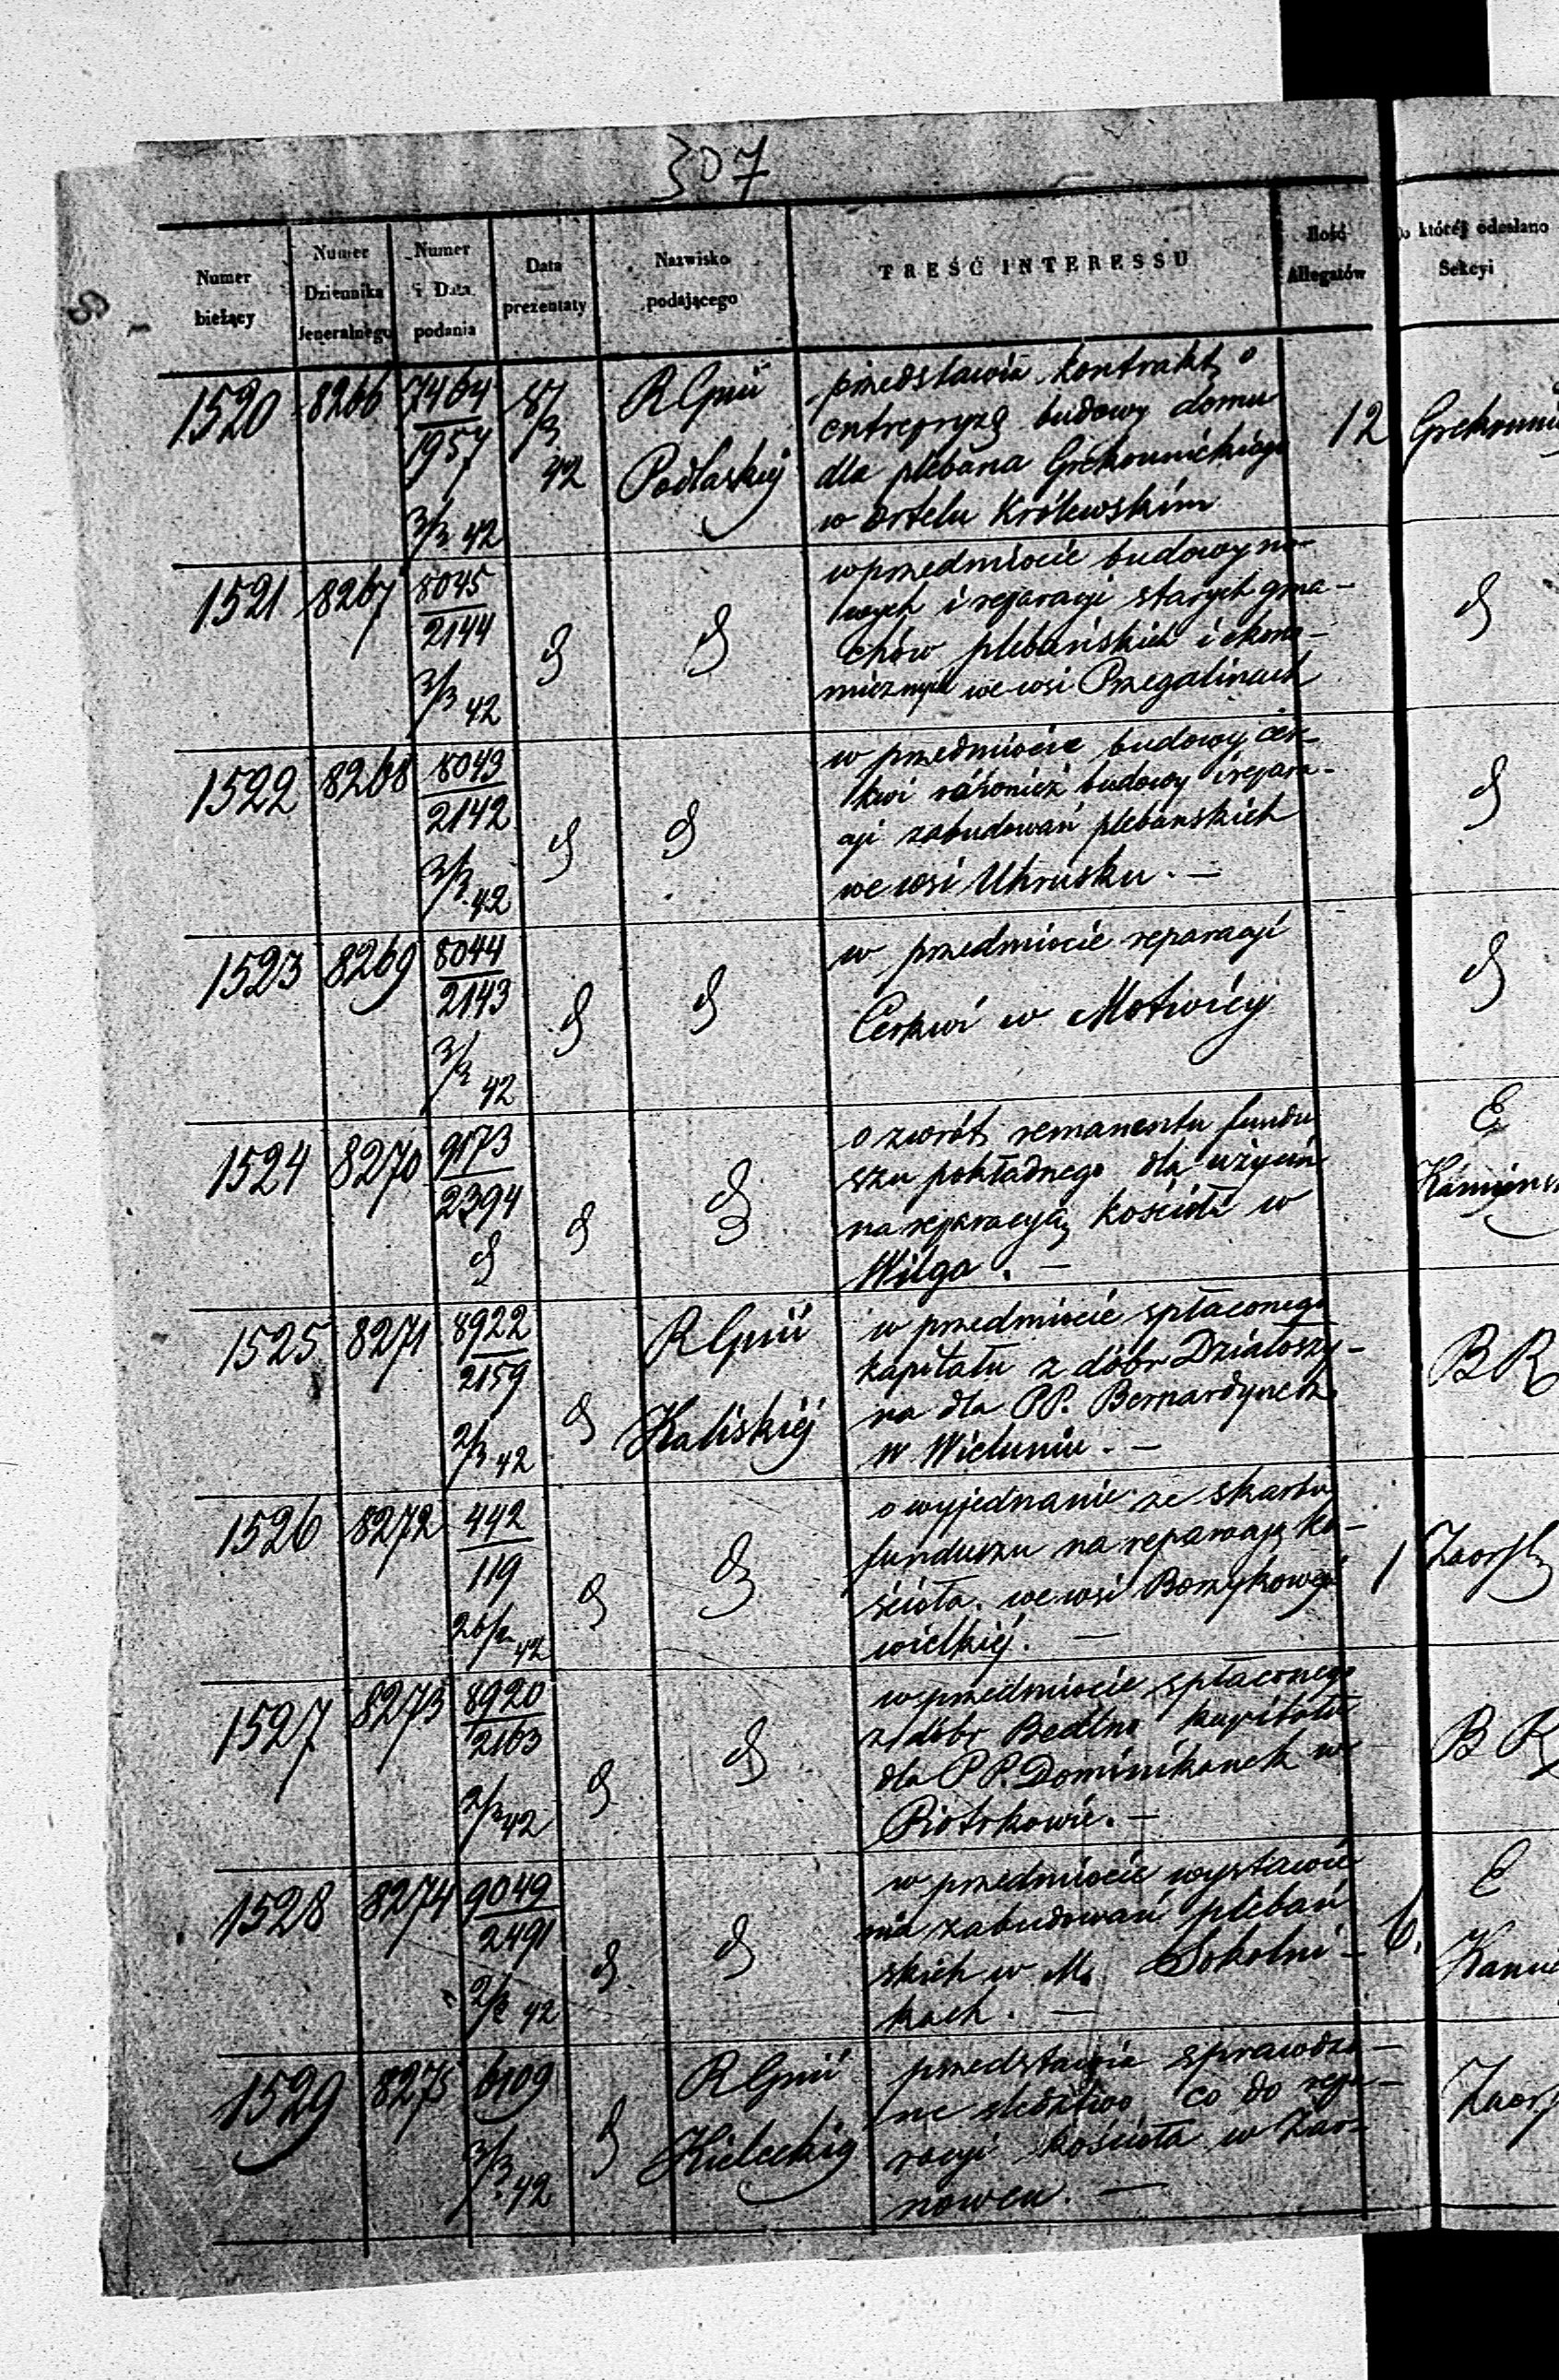 307
Numer bieżący
Numer Dziennika Jeneralnego
Numer i Data podania
Data prezentaty
Nazwisko podającego
TREŚĆ INTERESSU
Ilość Allegatów
któréj odesłano Sekcyi
1520 8266 7464/1957 3/3 42
8/3 42
R Gnii Podlaskiej
przedstawia kontrakt o
entrepryzę budowy domu
dla plebana Grekounickiego
w Ortelu Królewskim
12
1521 8267 8045/2144 3/3 42
w przedmiocie budowy no-
wych i reparacyi starych gma-
chów plebańskich i ekono-
micznych we wsi Przegalinach
1522 8268 8043/2142 3/3 42
w przedmiocie budowy cer-
kwi również budowy i repara-
cyi zabudowań plebanskich
we wsi Uhrusku. —
1523 8269 8044/2143 3/3 42
w przedmiocie reparacyi
Cerkwi w Motwicy
1524 8270 9173/2394
o zwrót remanentu fundu
szu pokładnego dla użycia
na reparacyą kościoła w
Wilga. —
E
1525 8271 8922/2159 2/3 42
R Gnii Kaliskiéj
w przedmiocie spłaconego
kapitału z dóbr Działoszy-
na dla PP. Bernardynek
w Wieluniu. —
B R
1526 8272 442/119 26/2 42
o wyjednanie ze skarbu
funduszu na reparacyą ko-
ścioła we wsi
wielkiéj. —
1
1527 8273 8920/2163 2/3 42
w przedmiocie spłaconego
z dóbr Bedlno kapitału
dla PP. Dominikanek w
Piotrkowie. —
B R
1528 8274 9049/2491 2/3 42
w przedmiocie wystawie
nia zabudowań plebań
skich w M. Sokolni-
kach. —
6.
E
1529 8275 6109 3/3 42
R Gnii Kieleckiéj
przedstawia sprawdzo-
ne śledztwo co do repa-
racyi kościoła w Żar-
nowcu. —